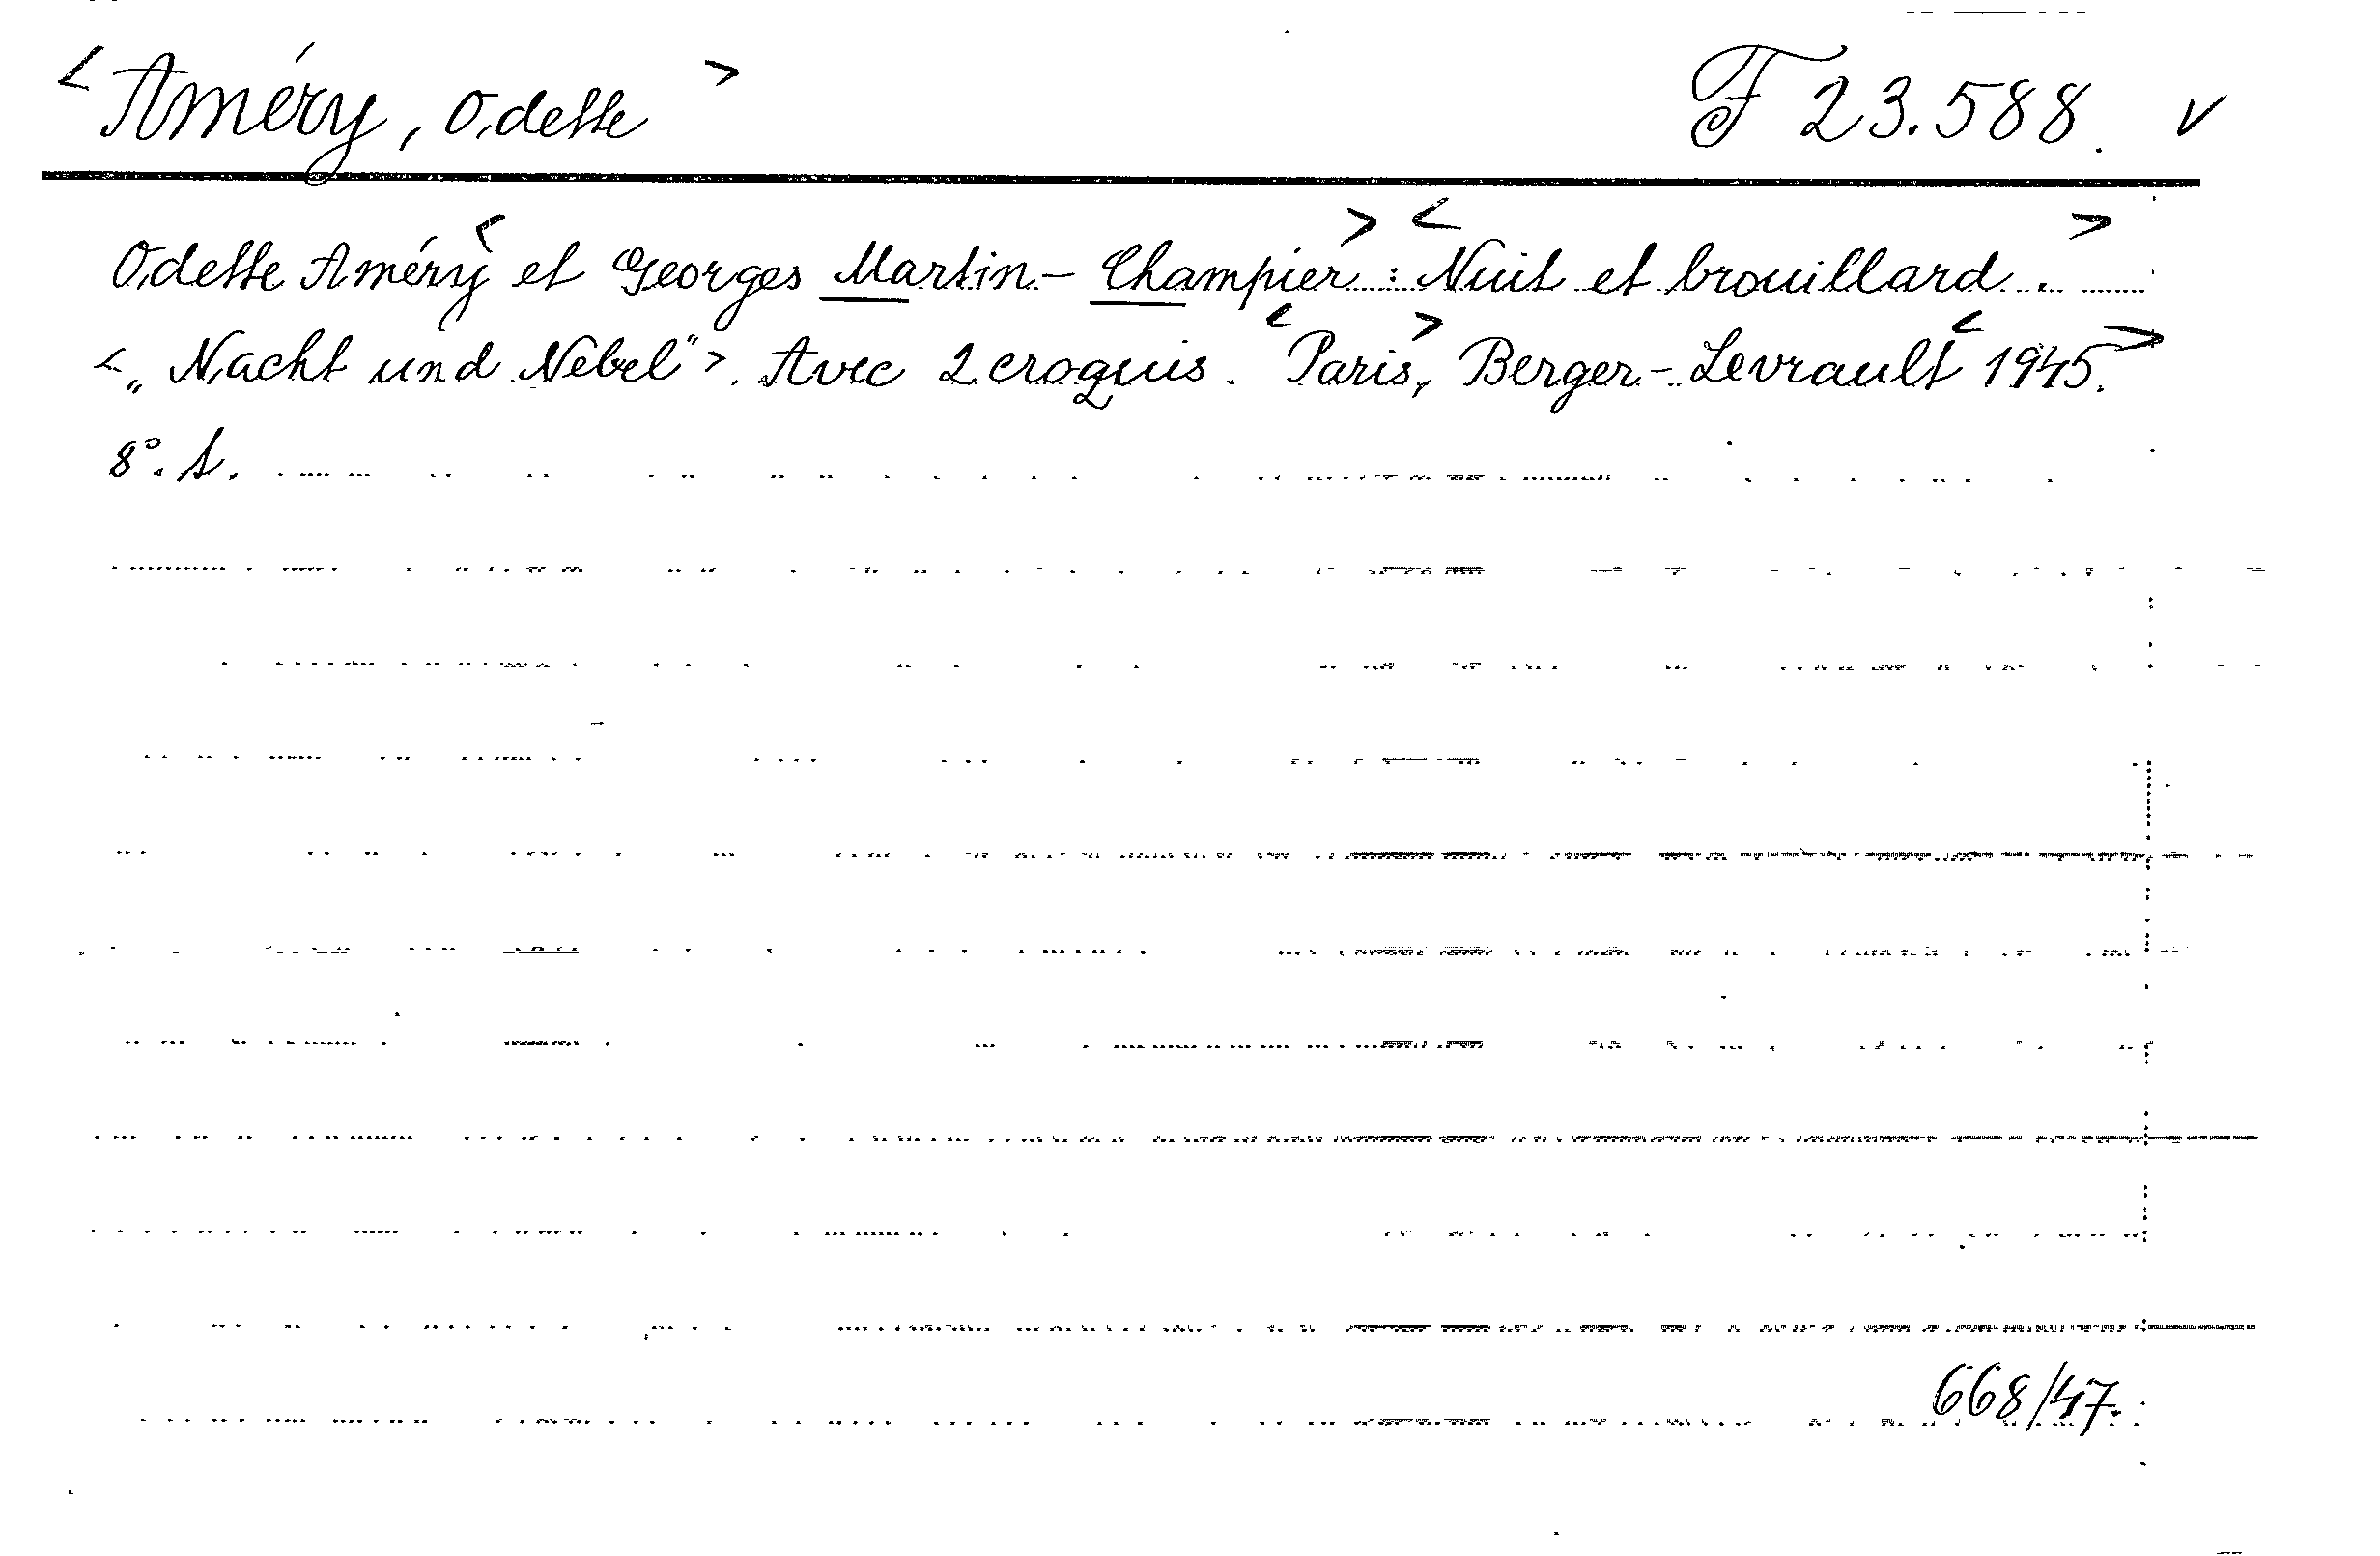 < Améry, Odette > F 23.588. v
Odette Améry < et Georges Martin-Champier : > < Nuit et brouillard . >
< „Nacht und Nebel" >. Avec 2 croquis. < Paris, > Berger-Levrault < 1945. >
8°. s.
668/47.